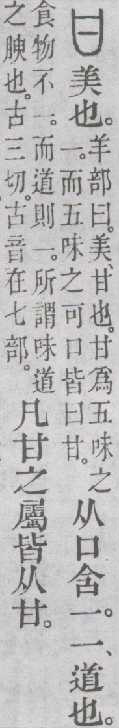 甘美也。
羊部曰。美、甘也。甘爲五味之
一。而五味之可口皆曰甘。
从口含一。一、道也。
食物不一。而道則一。所謂味道
之腴也。古三切。古音在七部。
凡甘之屬皆从甘。